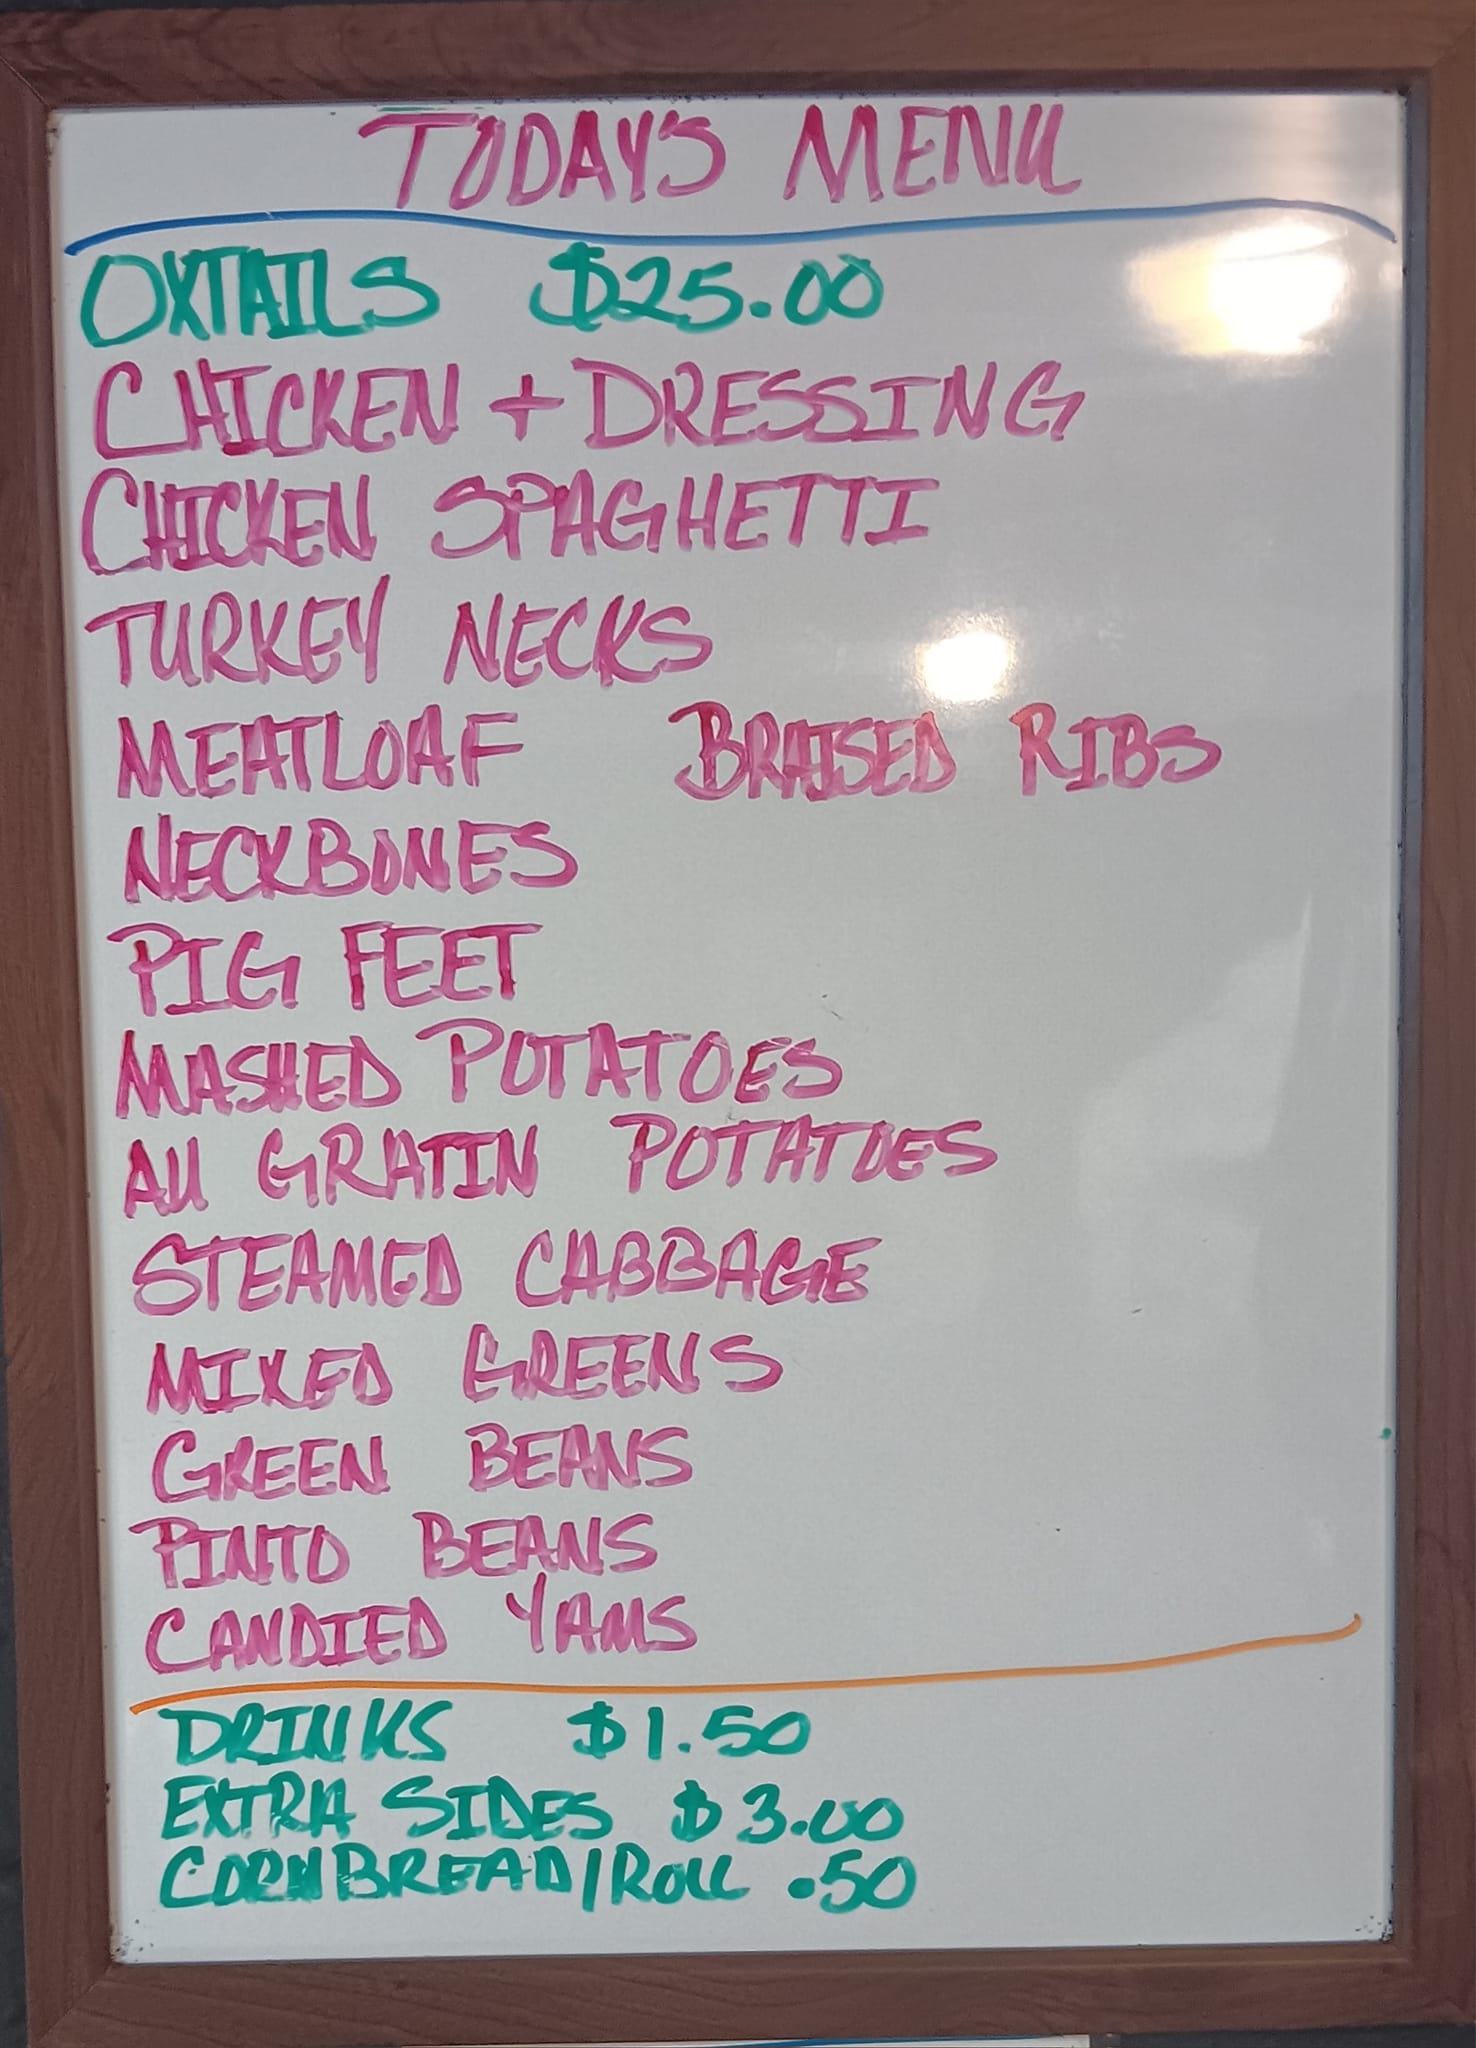 TODAY'S MENU
OXTAILS $25.00
CHICKEN + DRESSING
CHICKEN SPAGHETTI
TURKEY NECKS
MEATLOAF BRAISED RIBS
NECKBONES
PIG FEET
MASHED POTATOES
AU GRATIN POTATOES
STEAMED CABBAGE
MIXED GREENS
GREEN BEANS
PINTO BEANS
CANDIED YAMS
DRINKS $1.50
EXTRA SIDES $3.00
CORNBREAD/ROLL .50